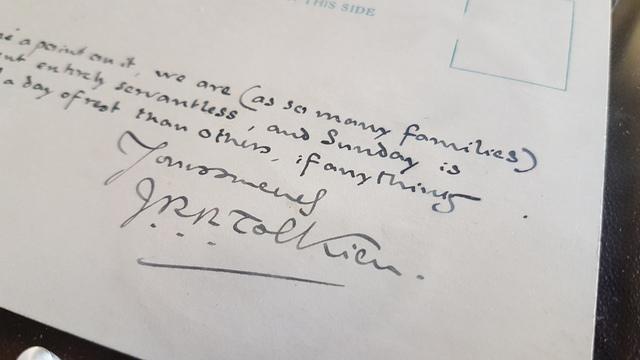 THIS SIDE
a point on it, we are (as so many families)
entirely servantless, and Sunday is
a day of rest than others, if anything.
Yours sincerely
J.R.R. Tolkien.